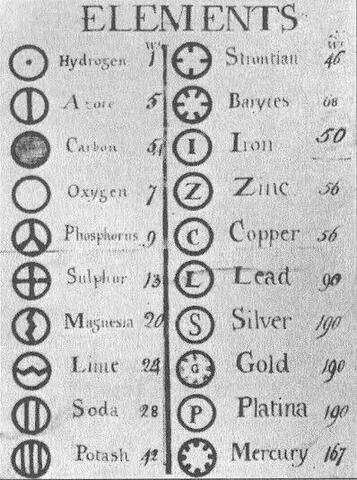 ELEMENTS
Wt
Hydrogen 1
Azote 5
Carbon 5 1
Oxygen 7
Phosphorus 9
Sulphur 13
Magnesia 20
Lime 24
Soda 28
Potash 42
Wt
Strontian 46
Barytes 68
I Iron 50
Z Zinc 56
C Copper 56
L Lead 90
S Silver 190
G Gold 190
P Platina 190
Mercury 167